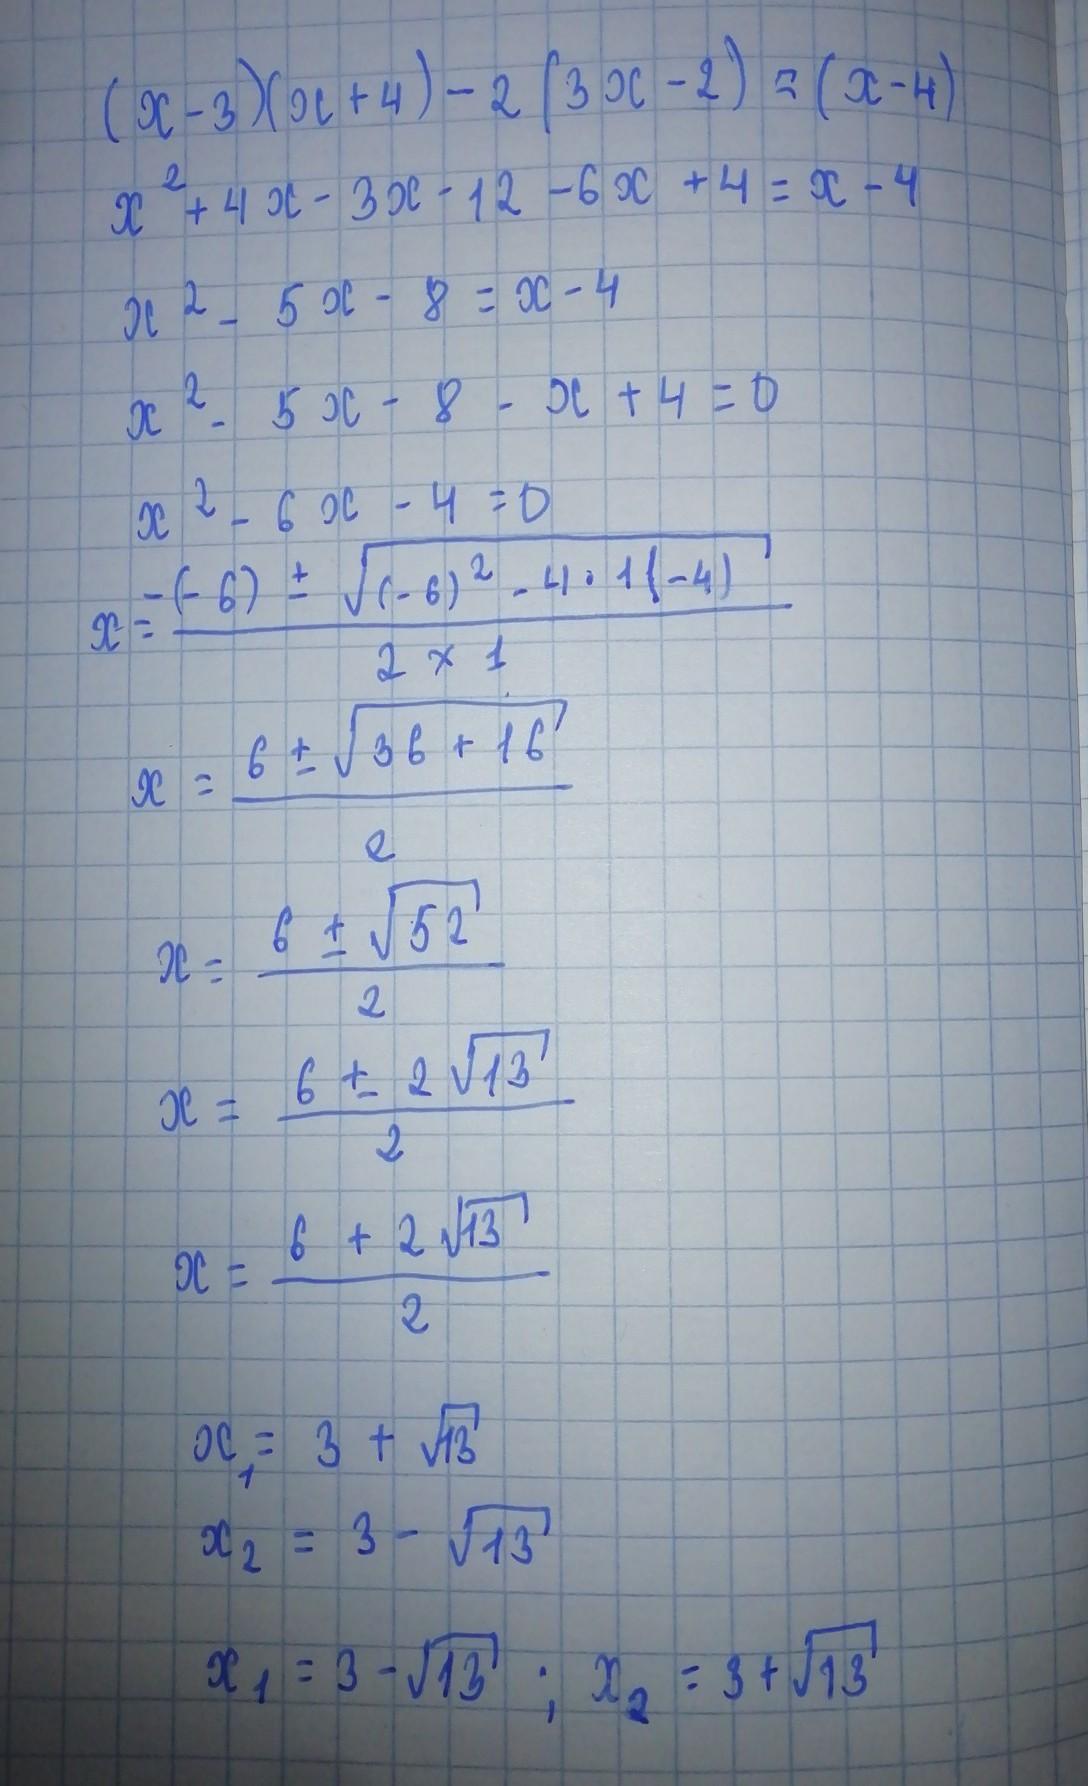 (x-3)(x+4)-2(3x-2)=(x-4)
x²+4x-3x-12-6x+4=x-4
x²-5x-8=x-4
x²-5x-8-x+4=0
x²-6x-4=0
x=(-(-6)±√((-6)²-4·1(-4)))/(2×1)
x=(6±√(36+16))/2
x=(6±√52)/2
x=(6±2√13)/2
x=(6+2√13)/2
x₁=3+√13
x₂=3-√13
x₁=3-√13; x₂=3+√13